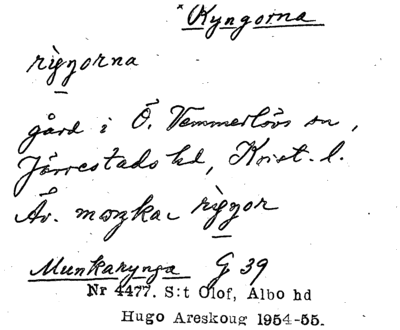 *Ryngorna
riŋŋorna
gård i Ö. Vemmerlövs sn,
Järrestads hd, Krist. l.
Äv. maŋka riŋŋor
Munkarynga G 39
Nr 4477. S:t Olof, Albo hd
Hugo Areskoug 1954-55.